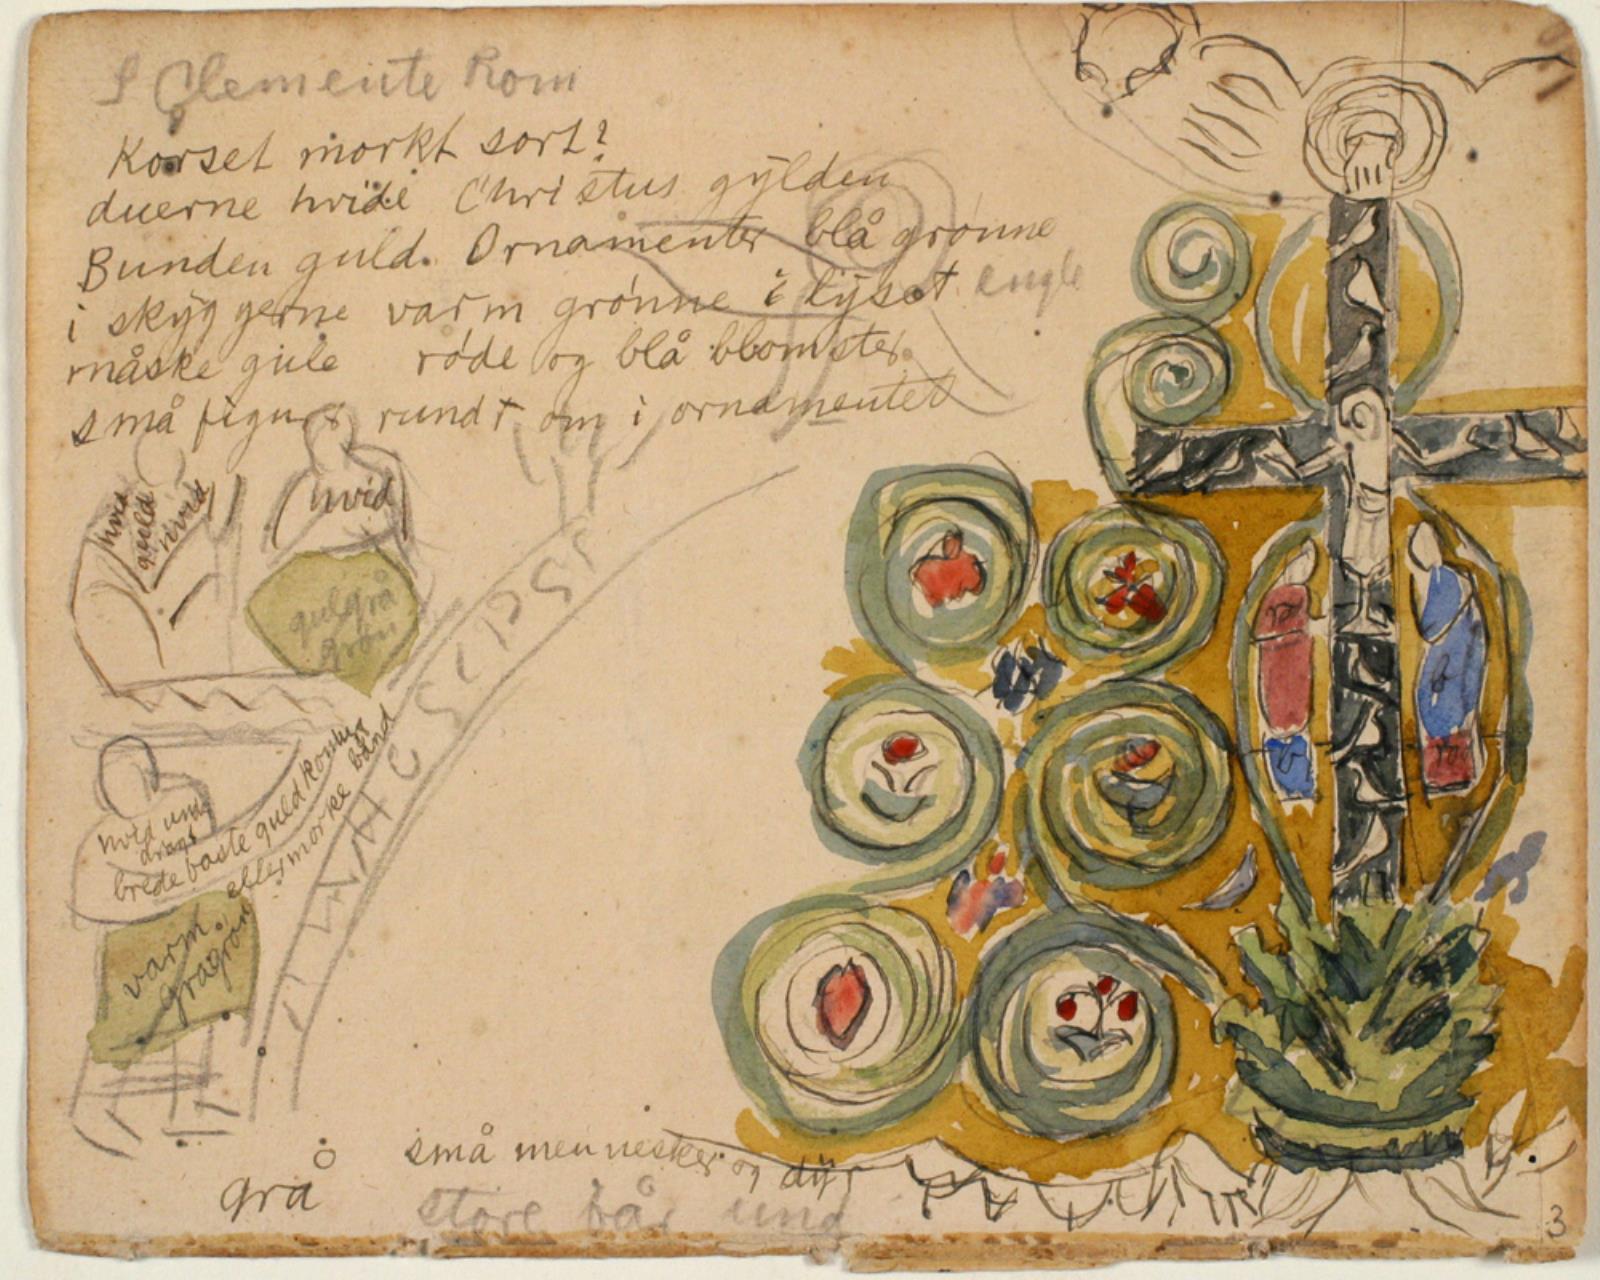 S Clemente Rom
Korset mørkt sort?
duerne hvide Christus gylden
Bunden guld. Ornamenter blå grønne
i skyggerne varm grønne i lyset engle
måske gule røde og blå blomster
små figurer rundt om i ornamentet
hvid
guld
hvid
hvid
gulgrå
grøn
hvid und
dragt
brede baste guld kommer
eller mørke bånd
varm
grågrøn
rø
b
b
rø
små mennesker og dyr
store får und
grå
3